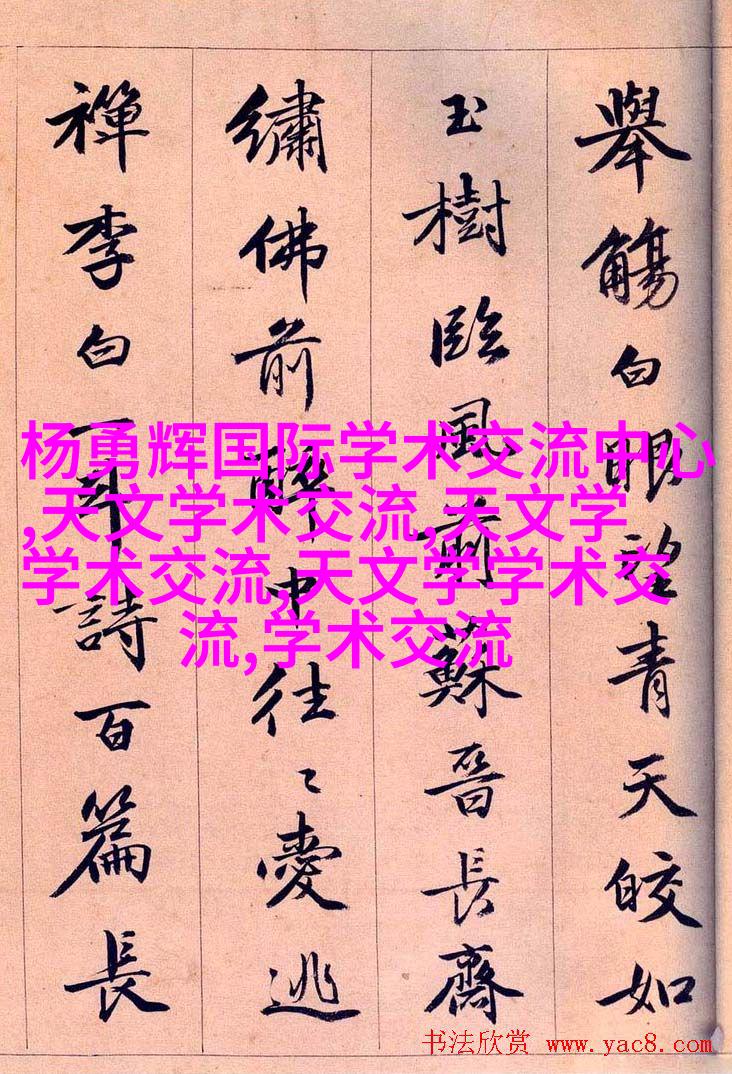 舉觴白眼望青天皎如
玉樹臨風前蘇晉長齋
繡佛前醉中往〻愛逃
禪李白一斗詩百篇長
杨勇辉国际学术交流中心
,天文学术交流,天文学
学术交流,天文学学术交
流,学术交流
书法欣赏 www.yac8.com